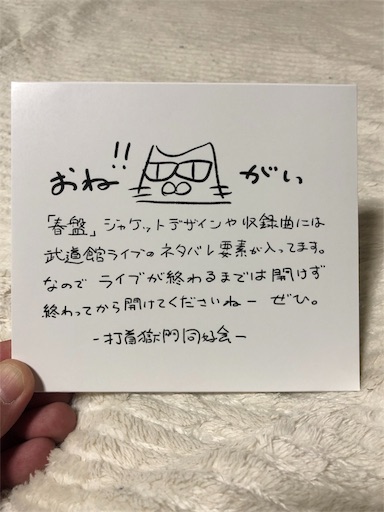 おね!!がい
「春盤」ジャケットデザインや収録曲には
武道館ライブのネタバレ要素が入ってます。
なので ライブが終わるまでは開けず
終わってから開けてくださいねー ぜひ。
-打首獄門同好会-